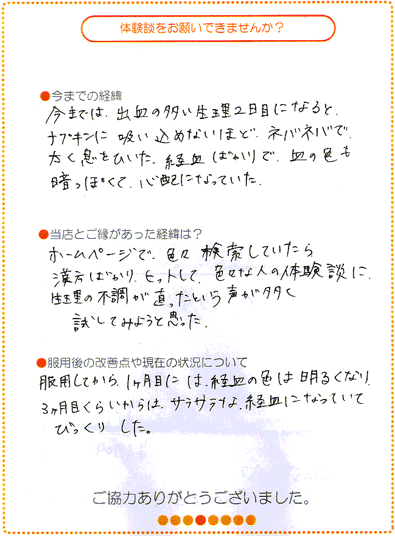 体験談をお願いできませんか？
●今までの経緯
今までは、出血の多い生理2日目になると、
ナプキンに吸い込めないほど、ネバネバで、
太く息をひいた、経血ばかりで、血の色も
暗っぽくて、心配になっていた。
●当店とご縁があった経緯は？
ホームページで、色々検索していたら
漢方ばかり、ヒットして、色々な人の体験談に、
生理の不調が直ったという声が多く
試してみようと思った。
●服用後の改善点や現在の状況について
服用してから、1ヶ月目には、経血の色は明るくなり、
3ヶ月目くらいからは、サラサラな、経血になっていて
びっくりした。
ご協力ありがとうございました。